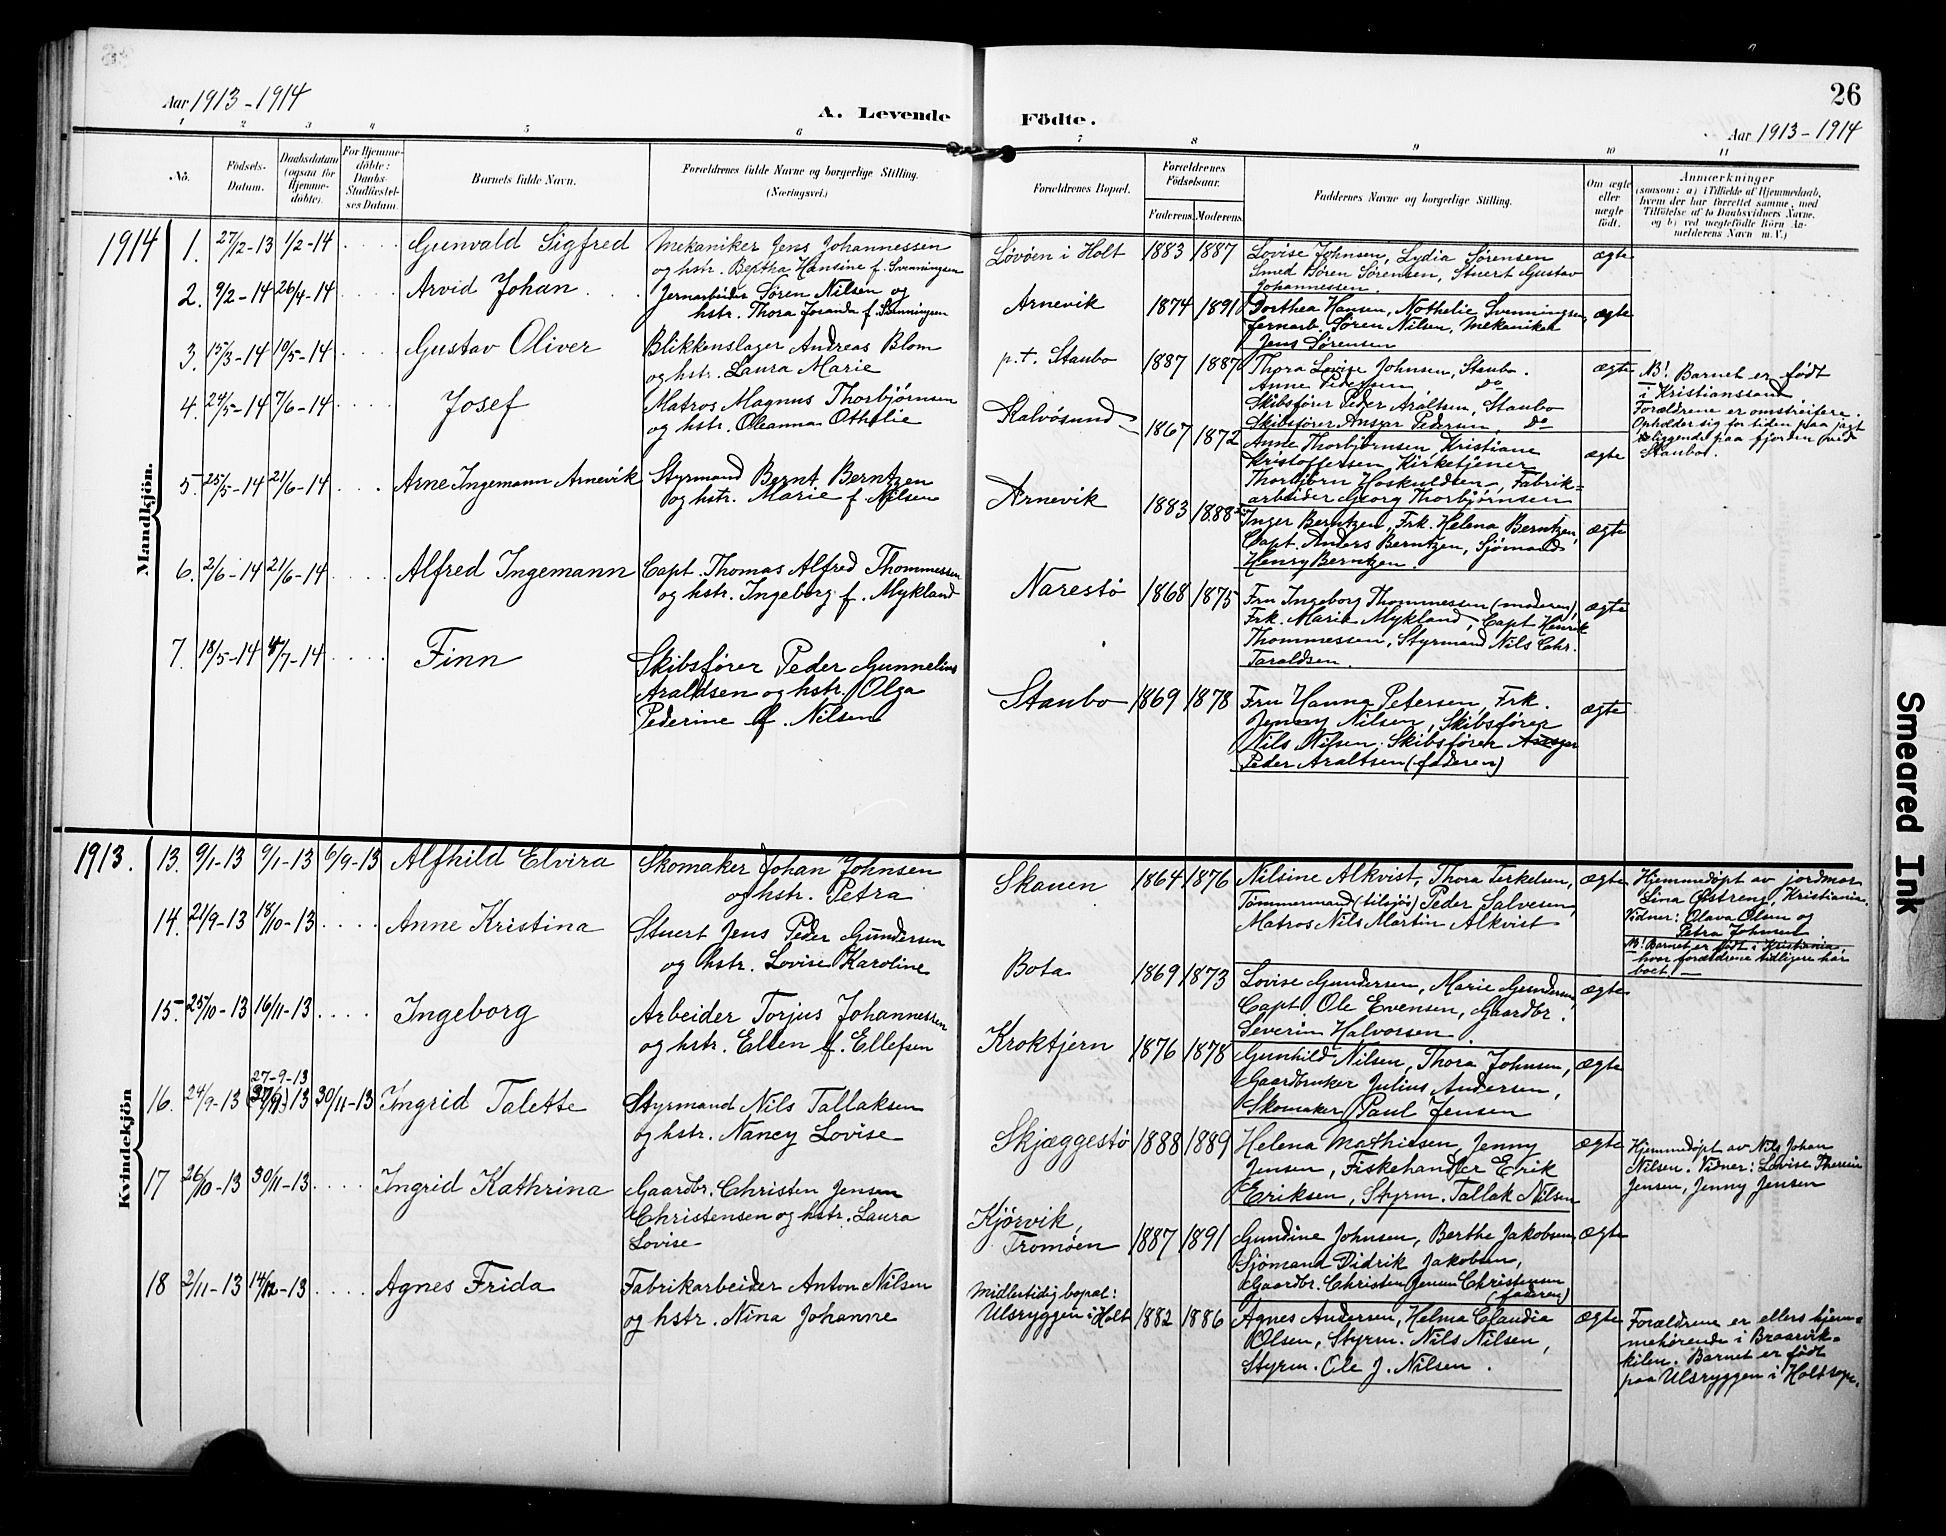 Aar 1913-1914
A. Levende
Födte.
26
Aar 1913-1914
1 2 3 4 5 6 7 8 9 10 11
No.
Födsels-
Datum.
Daabsdatum
(ogsaa for
Hjemme-
döbte).
For Hjemme-
döbte:
Daabs-
Stadfæstel-
ses Datum.
Barnets fulde Navn.
Forældrenes fulde Navne og borgerlige Stilling.
(Næringsvei.)
Forældrenes Bopæl.
Forældrenes
Födselsaar.
Faderens. Moderens.
Faddernes Navne og borgerlige Stilling.
Om ægte
eller
uægte
födt.
Anmærkninger
(saasom: a) i Tilfælde af Hjemmedaab,
hvem der har forrettet samme, med
Tilföielse af to Daabsvidners Navne,
og b) ved uægtefödte Börn An-
melderens Navn m.V.)
Mandkjön.
1914 1. 27/12-13 1/2-14 Gunvald Sigfred
Mekaniker Jens Johannessen
og hstr. Bertha Hansine f. Svenningsen
Løvøen i Holt 1883 1887
Lovise Johnsen, Lydia Sørensen
Smed Søren Sørensen, Stuert Gustav
Johannessen.
ægte
2. 9/2-14 26/4-14 Arvid Johan
Jernarbeider Søren Nilsen og
hstr. Thora Josanda f. Svenningsen
Arnevik 1874 1891
Dorthea Hansen, Nothelie Svenningsen,
Jernarb. Søren Nilsen, Mekaniker
Jens Sørensen
ægte
3. 15/3-14 10/5-14 Gustav Oliver
Blikkenslager Andreas Blom
og hstr. Laura Marie
p.t. Staubo 1887 1887
Thora Lovise Johnsen, Staubo.
Anne Pedersen do
Skibsfører Peder Araltsen, Staubo
Skibsfører Ansgar Pedersen, do
ægte
NB! Barnet er født
i Kristianssand
Forældrene er omstreifere.
Opholder sig for tiden paa jagt
liggende paa fjorden ved
Staubo.
4. 24/5-14 7/6-14 Josef
Matros Magnus Thorbjørnsen
og hstr. Oleanna Othelie
Kalvøsund 1867 1872
Anne Thorbjørnsen, Kristiane
Kristoffersen, Kirketjener
Thorbjørn Hoskuldsen, Fabrik=
arbeider Georg Thorbjørnsen
ægte
5. 25/5-14 21/6-14 Arne Ingemann Arnevik
Styrmand Bernt Berntzen
og hstr. Marie f. Nilsen
Arnevik 1883 1888
Inger Berntzen, Frk. Helena Berntzen,
Capt. Anders Berntzen, Sjømand
Henry Berntzen.
ægte
6. 2/6-14 21/6-14 Alfred Ingemann
Capt. Thomas Alfred Thommessen
og hstr. Ingeborg f. Mykland
Narestø 1868 1875
Fru Ingeborg Thommessen (moderen),
Frk. Marie Mykland, Capt Henrik
Thommessen, Styrmand Nils Chr.
Taraldsen.
ægte
7. 18/5-14 /7-14 Finn
Skibsfører Peder Gunnelius
Araldsen og hstr. Olga
Pederine f. Nilsen
Staubo 1869 1878
Fru Hanna Petersen, Frk.
Jenny Nilsen, Skibsfører
Nils Nilsen. Skibsfører Ansgar
Peder Araltsen (faderen)
ægte
Kvindekjön
1913. 13. 9/1-13 9/1-13 6/9-13 Alfhild Elvira
Skomaker Johan Johnsen
og hstr. Petra
Skauen 1864 1876
Nilsine Alkvist, Thora Terkelsen,
Tømmermand (tilsjøs) Peder Salvesen,
Matros Nils Martin Alkvist
ægte
Hjemmedøpt av jordmor
Lina Østreng, Kristiania.
Vidner: Olava Olsen og
Petra Johnsen
NB! Barnet er født i Kristiania,
hvor forældrene tidligere har
boet. —
14. 21/9-13 18/10-13 Anne Kristina
Stuert Jens Peder Gundersen
og hstr. Lovise Karoline
Bota 1869 1873
Lovise Gundersen, Marie Gundersen,
Capt. Ole Evensen, Gaardbr.
Severin Halvorsen.
ægte
15. 25/10-13 16/11-13 Ingeborg
Arbeider Torjus Johannessen
og hstr. Ellen f. Ellefsen
Kroktjern 1876 1878
Gunhild Nilsen, Thora Johnsen,
Gaardbruker Julius Andersen,
Skomaker Paul Jensen
ægte
27-9-13
16. 24/9-13 30/11-13 Ingrid Talette
Styrmand Nils Tallaksen
og hstr. Nancy Lovise
Skjæggestø 1888 1889
Helena Mathiesen, Jenny
Jensen, Fiskehandler Erik
Eriksen, Styrm. Tallak Nilsen
ægte
Hjemmedøpt av Nils Johan
Nilsen. Vidner: Lovise Theresie
Jensen, Jenny Jensen
17 26/10-13 30/11-13 Ingrid Kathrina
Gaardbr. Christen Jensen
Christensen og hstr. Laura
Lovise
Kjørvik,
Tromøen 1887 1891
Gundine Johnsen, Berthe Jakobsen,
Sjømand Didrik Jakobsen,
Gaardbr. Christen Jensen Christensen
(faderen)
ægte
18 2/11-13 14/12-13 Agnes Frida
Fabrikarbeider Anton Nilsen
og hstr. Nina Johanne
Midlertidig bopæl:
Ulsryggen i Holt 1882 1886
Agnes Andersen, Helma Claudia
Olsen, Styrm. Nils Nilsen,
Styrm. Ole J. Nilsen.
ægte
Forældrene er ellers hjem=
mehørende i Braarvik=
kilen. Barnet er født
paa Ulsryggen i Holt sogn.
Smeared Ink